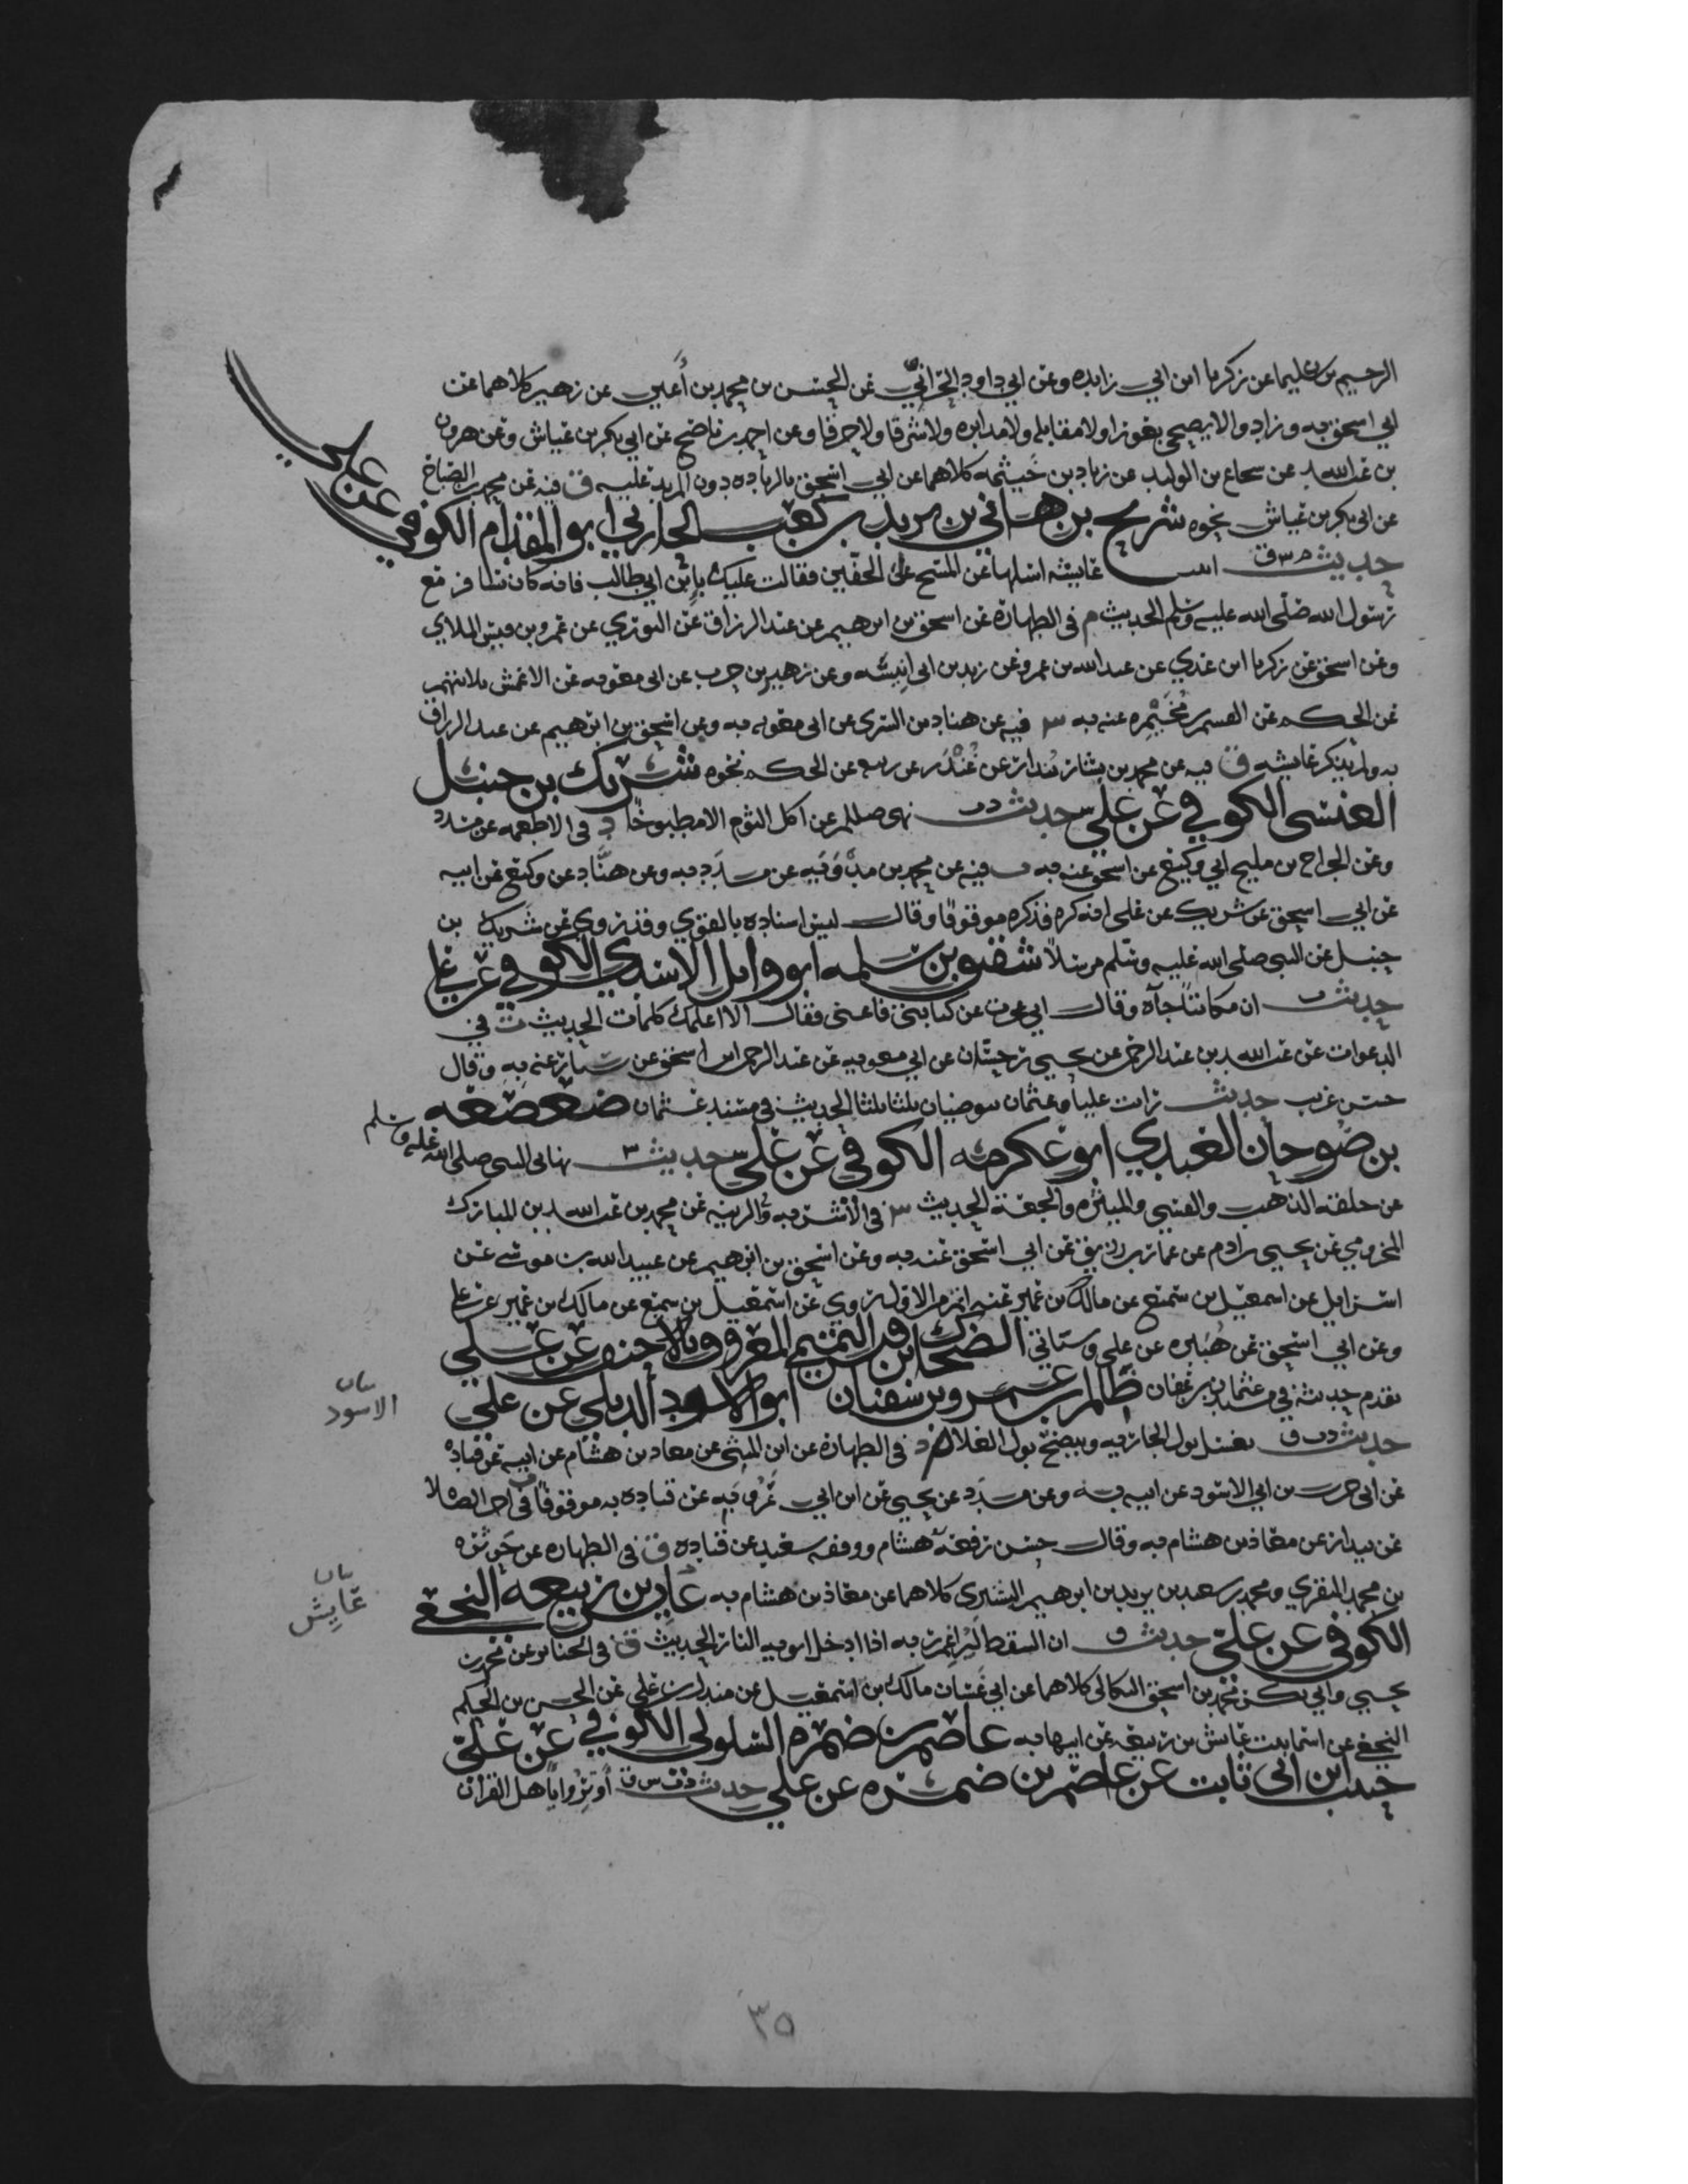 الرحيم بن سليمان عن زكريا ابن ابي زايده وعن ابي داود الحراني عن الحسن بن محمد بن أعين عن زهير كلاهما عن
ابي اسحق به وزاد والا يضحي بعورا ولا مقابله ولا مدابره ولا شرقا ولا خرقا وعن احمد بن ناصح عن ابي بكر بن عياش وعن هرون
بن عبد الله عن شجاع بن الوليد عن زياد بن خيثمه كلاهما عن ابي اسحق بالزياده دون المزيد عليه ق فيه عن محمد بن الصباح
عن ابي بكر بن عياش نحوه شريح بن هاني بن يزيد بن كعب الحارثي ابو المقدام الكوفي عن علي
حديث م س ق عايشه اسلها عن المسح على الخفين فقالت عليك بابن ابي طالب فانه كان يسافر مع
رسول الله صلى الله عليه وسلم الحديث م في الطهارة عن اسحق بن ابرهيم عن عبد الرزاق عن الثوري عن عمرو بن قيس الملاي
وعن اسحق عن زكريا ابن عدي عن عبيد الله بن عمرو عن زيد بن ابي انيسه وعن زهير بن حرب عن ابي معويه عن الاعمش ثلاثتهم
عن الحكم عن القسم بن مخيمره عنه به س فيه عن هناد بن السري عن ابي معويه به وعن اسحق بن ابرهيم عن عبد الرزاق
به ولم يذكر عايشه ق فيه عن محمد بن بشار بندار عن غندر عن شعبه عن الحكم نحوه شريك بن حنبل
العبسي الكوفي عن علي حديث د ت نهى صللم عن اكل الثوم الا مطبوخا د في الاطعمه عن مسدد
وعن الجراح بن مليح ابي وكيع عن ابي اسحق عنه به ت فيه عن محمد بن مدويه عن مسدد به وعن هناد عن وكيع عن ابيه
عن ابي اسحق عن شريك عن علي انه كره فذكره موقوفا وقال ليس اسناده بالقوي وقد روي عن شريك بن
حنبل عن النبي صلى الله عليه وسلم مرسلا شقيق بن سلمه ابو وايل الاسدي الكوفي عن علي
حديث ت ان مكاتبا جآه وقال اني عجزت عن كتابتي فاعني فقال الا اعلمك كلمات الحديث ت في
الدعوات عن عبد الله بن عبد الرحمن عن يحيى بن حسان عن ابي معويه عن عبد الرحمن ابن اسحق عن سيار عنه به وقال
حسن غريب حديث رايت عليا وعثمان يتوضيان ثلثا ثلثا الحديث في مسند عثمان صعصعه
بن صوحان العبدي ابو عكرمه الكوفي عن علي حديث س نهاني النبي صلى الله عليه وسلم
عن حلقه الذهب والقسي والميثره والجعة الحديث س في الاشربه والزينه عن محمد بن عبد الله بن المبارك
المخرومي عن يحيى بن ادم عن عمار بن رزيق عن ابي اسحق عنه به وعن اسحق بن ابرهيم عن عبيد الله بن موسى عن
اسرايل عن اسمعيل بن سميع عن مالك بن عمير عنه اتم من الاول روي عن اسمعيل بن سميع عن مالك بن عمير عن علي
وعن ابي اسحق عن هبيره عن علي وسياتي الضحاك ابن قيس التميمي المعروف بالاحنف عن علي
تقدم حديثه في مسند عثمان بن عفان ظالم بن عمرو بن سفيان ابو الاسود الديلي عن علي
بيان
الاسود
حديث د ت ق يغسل بول الجاريه وينضح بول الغلام د في الطهارة عن ابن المثنى عن معاذ بن هشام عن ابيه عن قتاده
عن ابي حرب بن ابي الاسود عن ابيه به وعن مسدد عن يحيى عن ابن ابي عروبه عن قتاده به موقوفا ت في اخر الصلاة
عن بندار عن معاذ بن هشام به وقال حسن رفعه هشام ووقفه سعيد عن قتاده ق في الطهاره عن حوثره
بن محمد المنقري ومحمد بن سعيد بن يزيد بن ابرهيم التستري كلاهما عن معاذ بن هشام به عابس بن ربيعه النخعي
بيان
عابس
الكوفي عن علي حديث ق ان السقط ليراغم ربه اذا ادخل ابويه النار الحديث ق في الجنائز عن محمد بن
يحيى وابي بكر محمد بن اسحق البكائي كلاهما عن ابي غسان مالك بن اسمعيل عن مندل بن علي عن الحسن بن الحكم
النخعي عن اسما بنت عابس بن ربيعه عن ابيها به عاصم بن ضمره السلولي الكوفي عن علي
حبيب ابن ابي ثابت عن عاصم بن ضمره عن علي حديث د ت س ق أوتروا يا اهل القران
٣٥